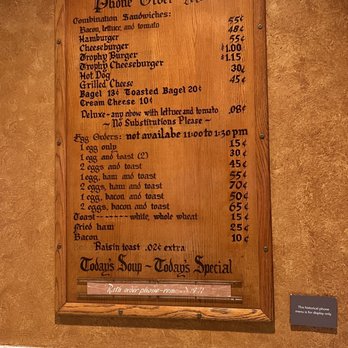 Phone Order
Combination Sandwiches:
Bacon, lettuce, and tomato 55¢
Hamburger 48¢
Cheeseburger 55¢
Trophy Burger $1.00
Trophy Cheeseburger $1.15
Hot Dog 30¢
Grilled Cheese 45¢
Bagel 13¢ Toasted Bagel 20¢
Cream Cheese 10¢
Deluxe-any above with lettuce and tomato .08¢
~ No Substitutions Please ~
Egg Orders: not availabe 11:00 to 1:30 pm
1 egg only 15¢
1 egg and toast (2) 30¢
2 eggs and toast 45¢
1 egg, ham and toast 55¢
2 eggs, ham and toast 70¢
1 egg, bacon and toast 50¢
2 eggs, bacon and toast 65¢
Toast------ white, whole wheat 15¢
Fried ham 25¢
Bacon 10¢
Raisin toast .02¢ extra
Today's Soup ~ Today's Special
order phone
This historical phone
menu is for display only.